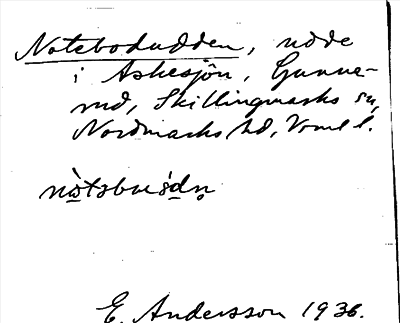 Notebodudden, udde
i Askesjön, Gunne-
rud, Skillingmarks sn,
Nordmarks hd, Vrml l.
E. Andersson 1936.